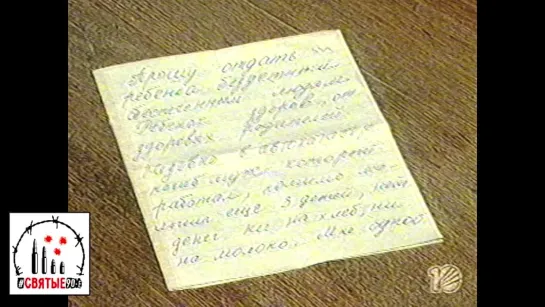 Прошу отдать
ребенка бездетным
обеспеченным людям.
Ребенок здоров от
здоровых родителей
Недавно в автокатастр
погиб муж, который
работал, помимо ма
лыша еще 3 детей, нет
денег ни на хлеб, ни
на молоко. Мне одной
#СВЯТЫЕ90Е
10